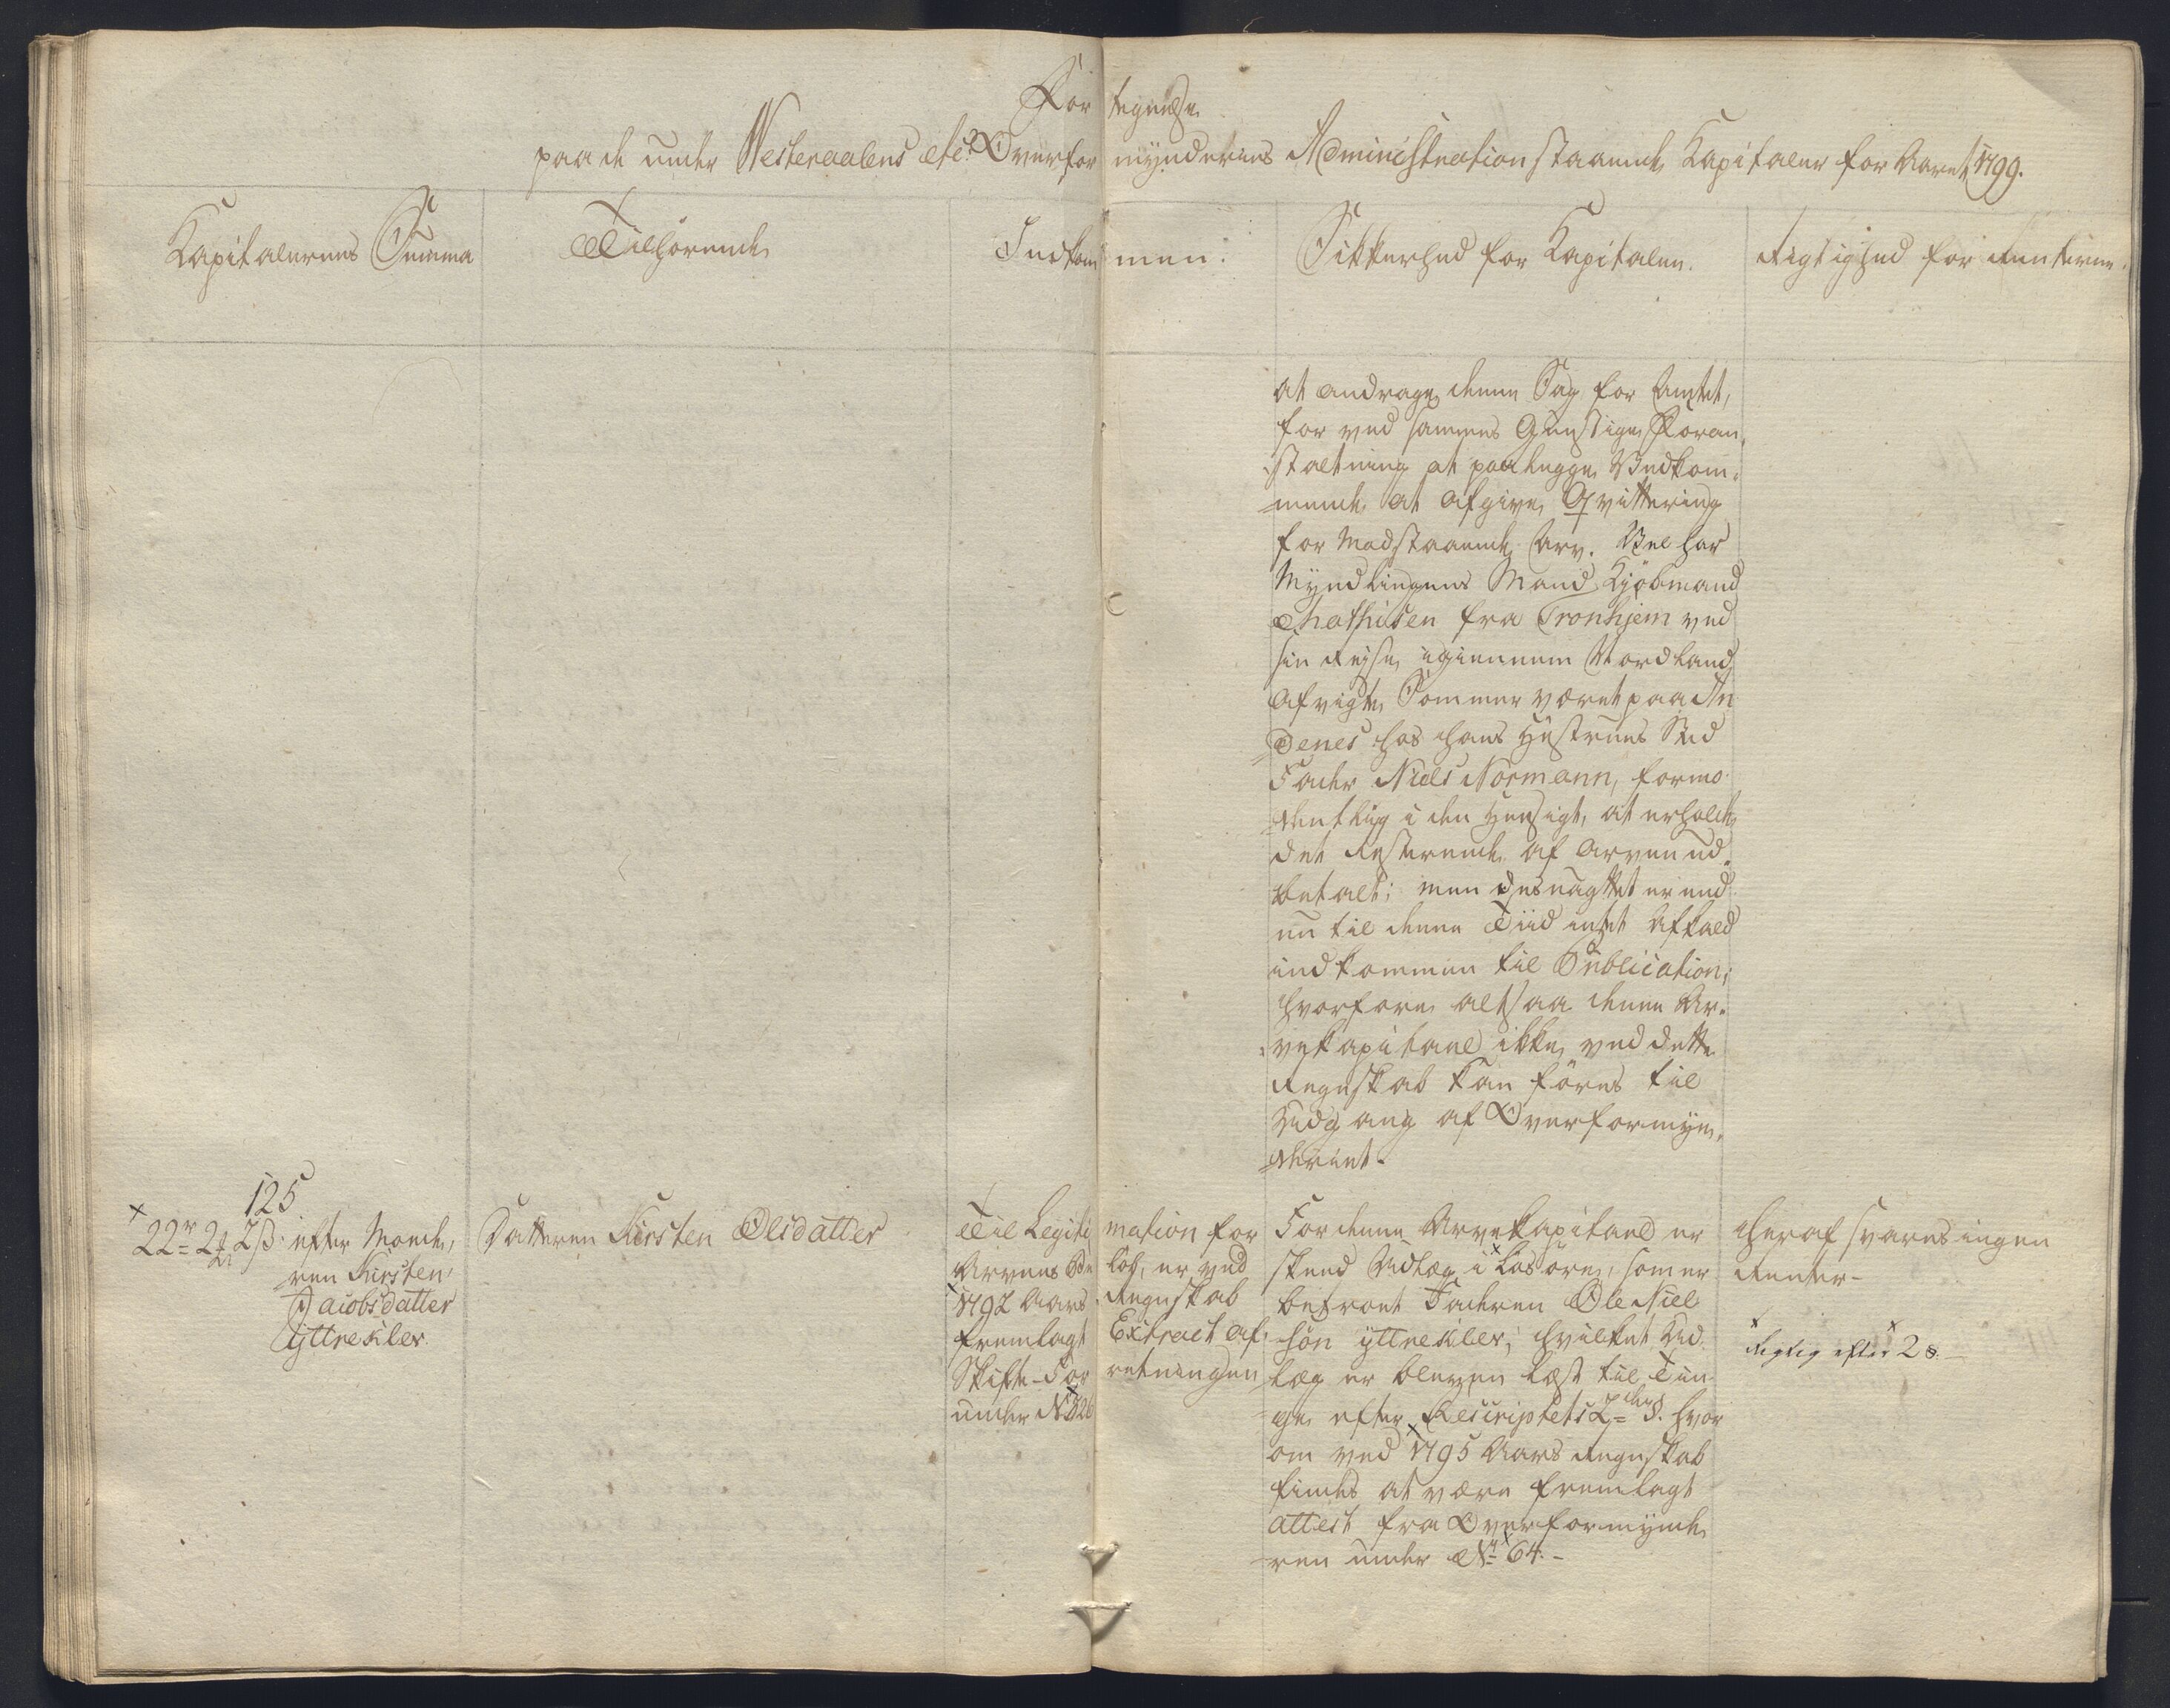 For tegnelse
paa de under Westeraalens etc. Overfor mynderies Administration staaende Kapitaler for Aaret 1799.
Kapitalernes Summa
Tilhørende
Indkom men.
Sikkerhed for Kapitalen.
Rigtighed for Renterne.
at andrage denne Sag for Amtet,
for ved sammes Gunstige Foran-
staltning at paalegge Vedkom-
mende at afgive Qvittering
for modstaaende Arv. Vel har
Myndlingens Mand Kjøbmand
Mathisen fra Tronhjem ved
sin Rejse igiennem Nordland
afvigte Sommer været paa An
denes hos hans Hustrues Sted
Fader Niels Normann, formo
dentlig i den Hensigt, at erholde
det Resterende af Arven ud-
betalt; men desuagtet er end
nu til denne Tiid intet Afkald
indkommen til Publication;
hvorfore altsaa denne Ar-
vekapitael ikke ved dette
Regnskab kan føres til
Udgang af Overformyn-
deriet.
125.
22r 2 2/3 efter Mode-
ren Kirsten
Jacobsdatter
Yttrekiler.
Datteren Kirsten Olsdatter
Til Legiti mation for
Arvens Be løb, er ved
1792 Aars Regnskab
fremlagt Extract af
Skifte-For retningen
under No 326
For denne Arvekapitael er
skeed Udlæg i Løsøre, som er
betroet Faderen Ole Niel
sön Yttrekiler, hvilket Ud
læg er bleven læst til Tin
ge efter Rescriptets 2den §. hvor
om ved 1795 Aars Regnskab
findes at være fremlagt
attest fra Overformynde
ren under No 64.-
Heraf svares ingen
Renter-
Rigtig efter 28.